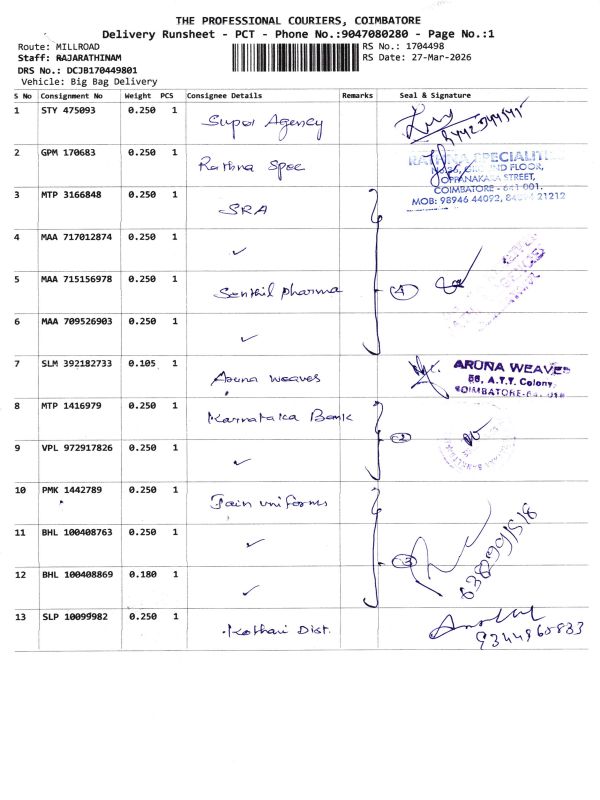 THE PROFESSIONAL COURIERS, COIMBATORE
Delivery Runsheet - PCT - Phone No.:9047080280 - Page No.:1
Route: MILLROAD
RS No.: 1704498
Staff: RAJARATHINAM
RS Date: 27-Mar-2026
DRS No.: DCJB170449801
Vehicle: Big Bag Delivery
S No Consignment No Weight PCS Consignee Details Remarks Seal & Signature
1 STY 475093 0.250 1 Super Agency
2 GPM 170683 0.250 1 Rathna Spec
RATHNA SPECIALITIES
GROUND FLOOR,
OPPANAKARA STREET,
COIMBATORE - 641 001.
MOB: 98946 44092, 21212
3 MTP 3166848 0.250 1 SRA
4 MAA 717012874 0.250 1 ✓
5 MAA 715156978 0.250 1 Senthil pharma 4
6 MAA 709526903 0.250 1 ✓
7 SLM 392182733 0.105 1 Aruna weaves
ARUNA WEAVES
56, A.T.T. Colony,
COIMBATORE
8 MTP 1416979 0.250 1 Karnataka Bank
2
9 VPL 972917826 0.250 1 ✓
10 PMK 1442789 0.250 1 Jain uniforms
11 BHL 100408763 0.250 1 ✓
3
12 BHL 100408869 0.180 1 ✓
13 SLP 10099982 0.250 1 Kothari Dist.